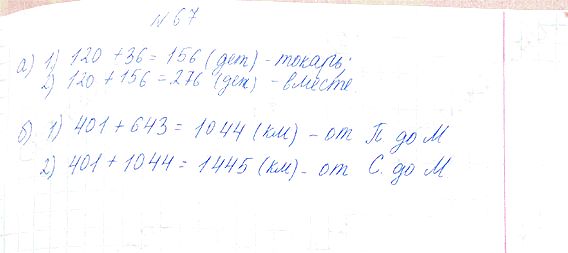 №67
а) 1) 120 + 36 = 156 (дет) - токарь;
2) 120 + 156 = 276 (дет) - вместе
б) 1) 401 + 643 = 1044 (км) - от П. до М
2) 401 + 1044 = 1445 (км) - от С. до М